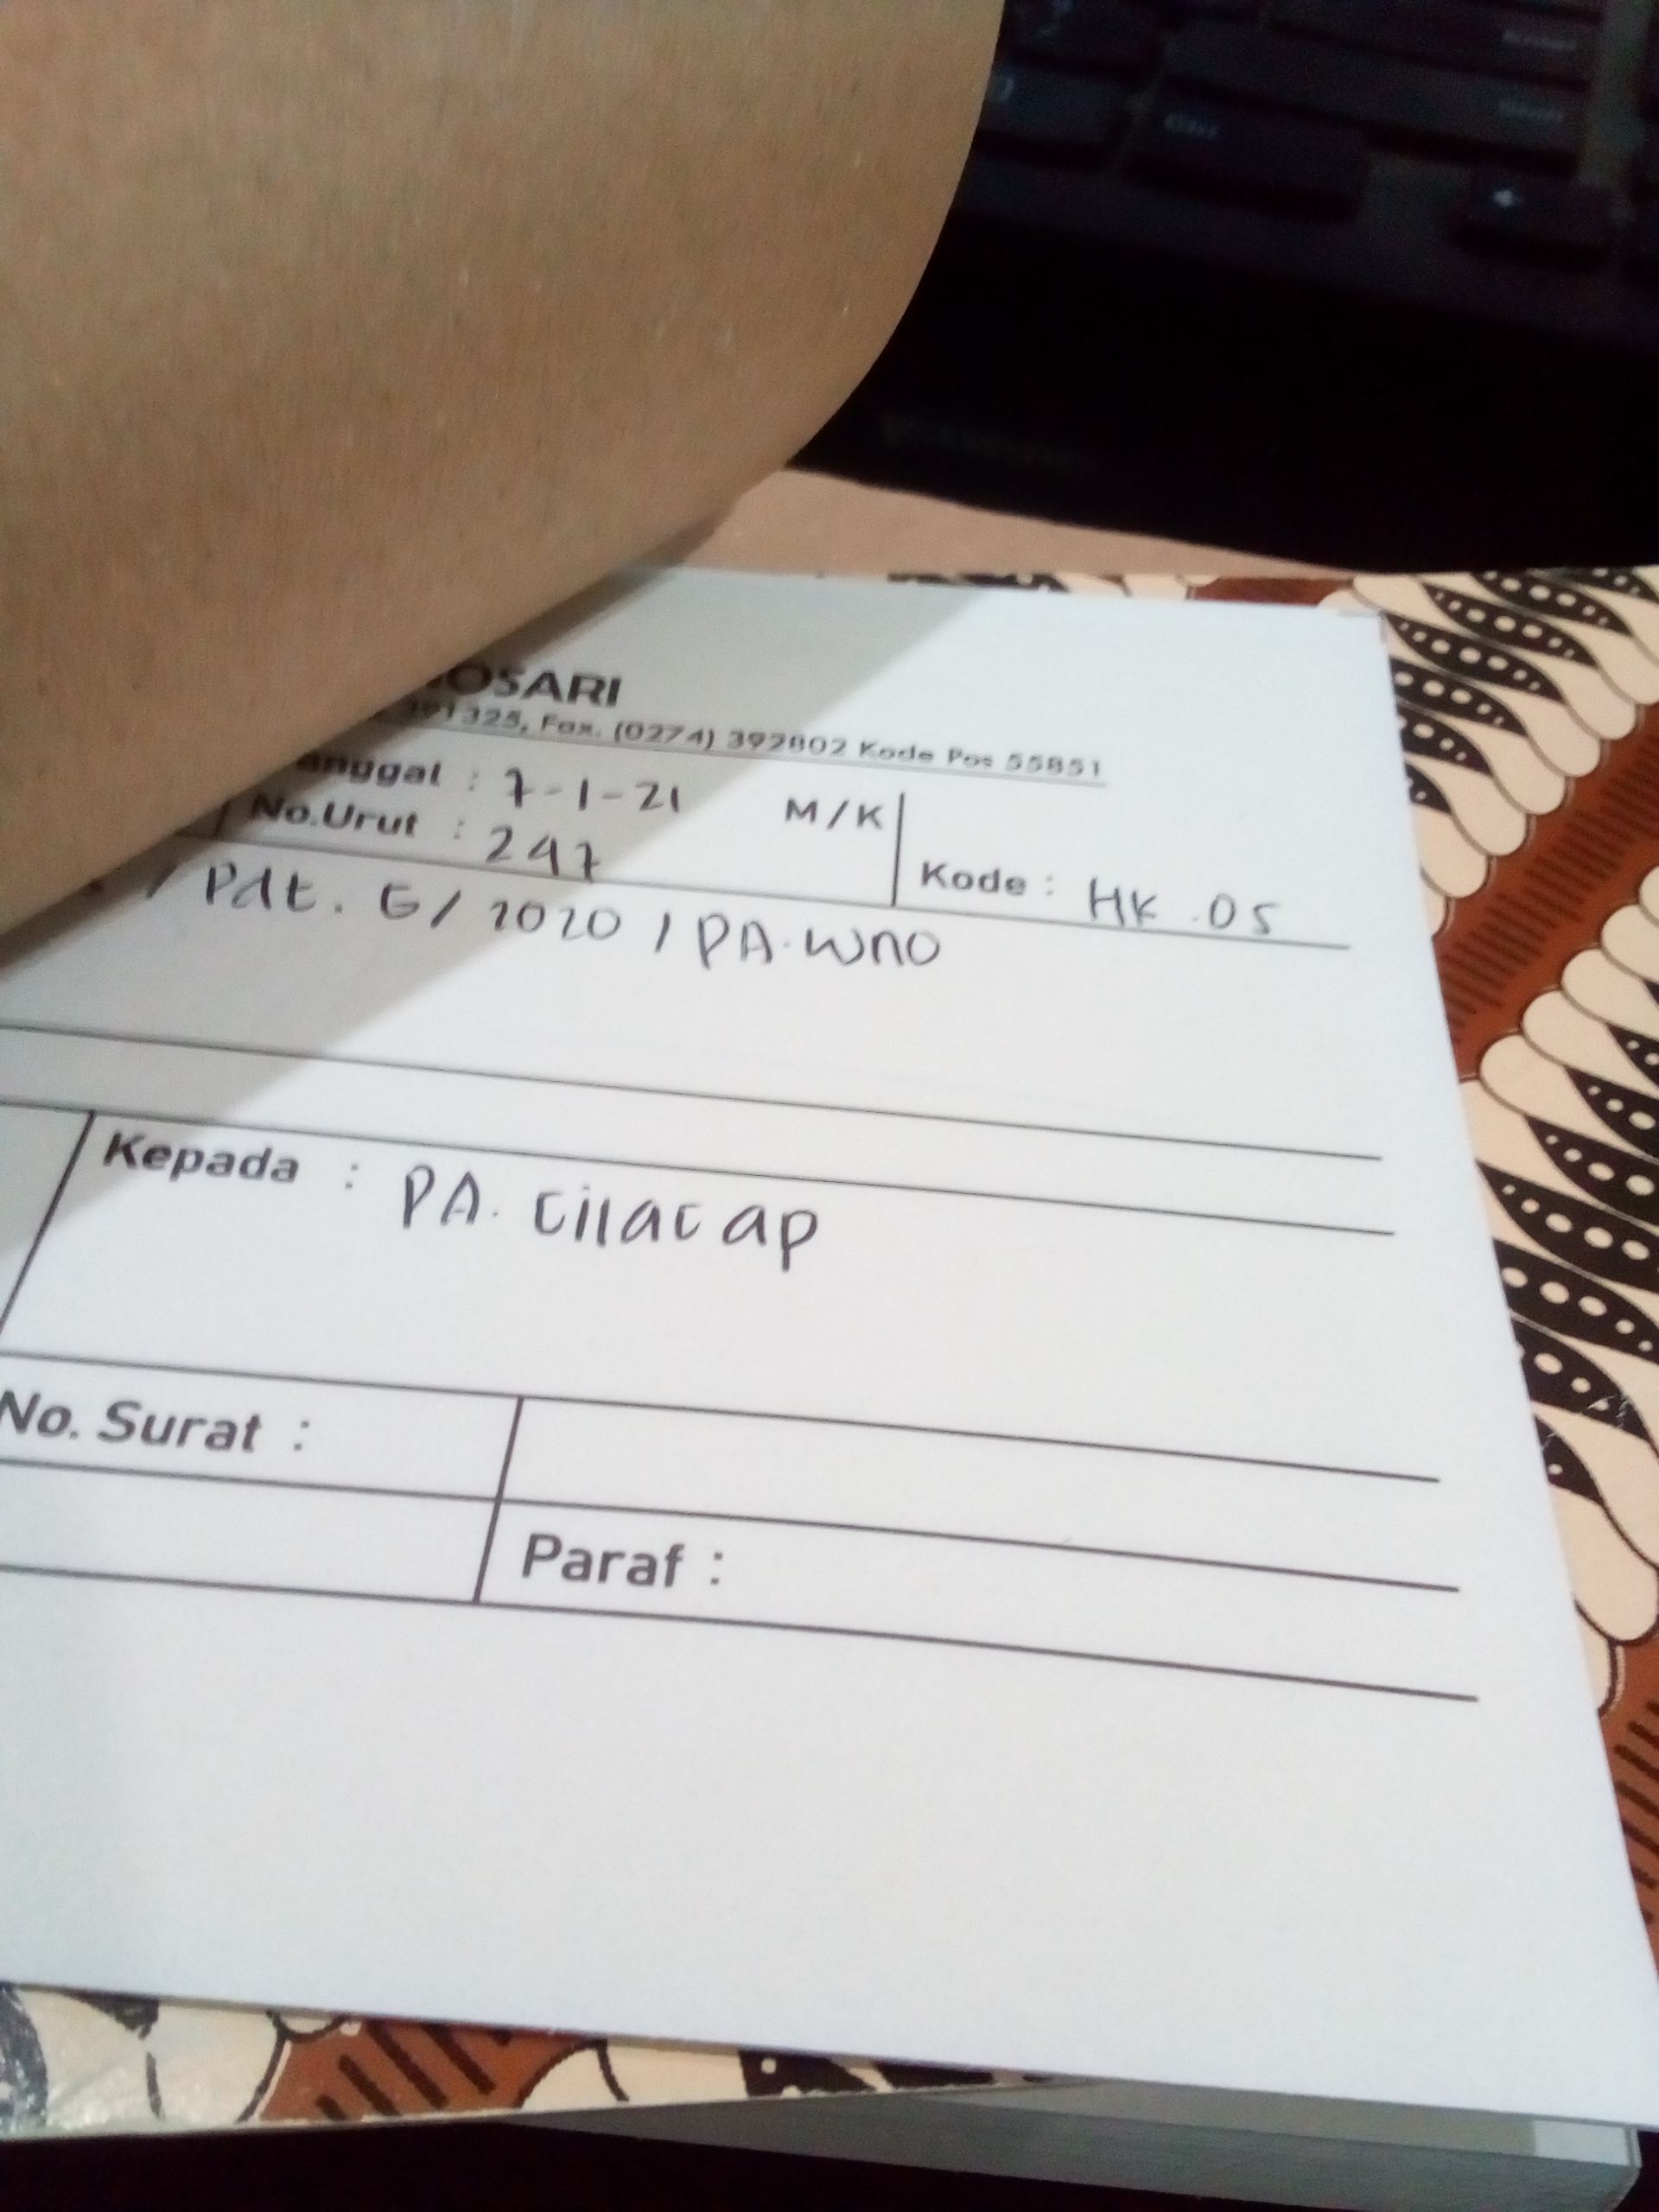 OSARI
391325, Fax. (0274) 392802 Kode Pos 55851
anggal : 7-1-21
M/K
No.Urut : 247
Kode : HK .05
/ Pdt. G/ 2020 / PA. Wno
Kepada : PA. Cilacap
No. Surat :
Paraf :